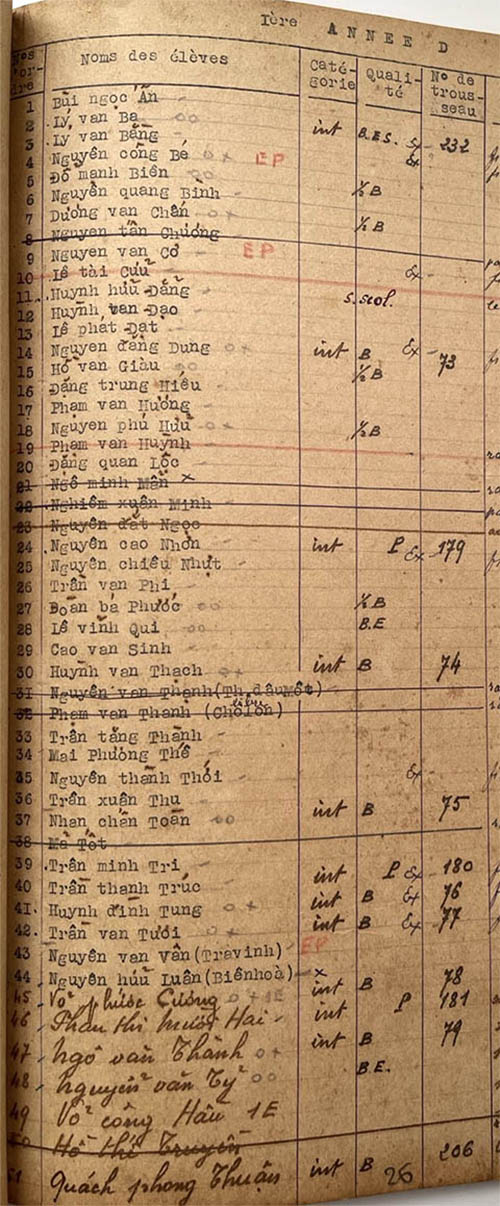 Ière ANNEE D
Nos d'or-dre Noms des élèves Caté-gorie Quali-té No de trous-seau
1 Bùi ngọc Ẩn
2 Lý van Ba oo int B.E.S. Ex 232
3 Lý van Bằng Ex
4 Nguyễn công Bé o+ EP
5 Đỗ mạnh Biên oo
6 Nguyễn quang Bình ½ B
7 Dương van Chấn o+ ½ B
8 Nguyen tấn Chương
9 Nguyen van Cơ EP
10 Lê tài Cửu Ex
11 Huynh hửu Đằng s.scol.
12 Huỳnh van Đạo
13 Lê phát Đạt
14 Nguyen đăng Dung o+ int B Ex 73
15 Hồ van Giàu oo ½ B
16 Đặng trung Hiếu
17 Phạm van Hương
18 Nguyen phú Hửu o+ ½ B
19 Phạm van Huỳnh
20 Đặng quan Lộc
21 Ngô minh Mẫn x
22 Nghiêm xuân Minh
23 Nguyễn đắt Ngọc
24 Nguyễn cao Nhơn int P Ex 179
25 Nguyễn chiêu Nhựt
26 Trần van Phi
27 Đoàn bá Phước oo ½ B
28 Lê vinh Qui oo B.E
29 Cao van Sinh
30 Huỳnh van Thạch o+ int B 74
31 Nguyễn van Thạnh (Th.dầuMột)
32 Phạm van Thanh (Chợlớn)
33 Trần tăng Thành
34 Mai Phương Thế
35 Nguyễn thành Thới Ex
36 Trần xuân Thu int B 75
37 Nhan chấn Toàn oo
38 Mã Tốt
39 Trần minh Tri int P Ex 180
40 Trần thanh Trúc int B Ex 76
41 Huynh đình Tung o+ int B Ex 77
42 Trần van Tươi o+
43 Nguyễn van Vân (Tràvinh) EP
44 Nguyễn hửu Luân (Biênhoà) x int B 78
45 Võ phước Cương o+ 1E int P 181
46 Phan thi Mười Hai int B 79
47 Ngô văn Thành o+
48 Nguyễn văn Tỷ oo B.E.
49 Võ công Hầu 1E
50 Hồ thi Truyền 206
51 Quách phong Thuận int B 26